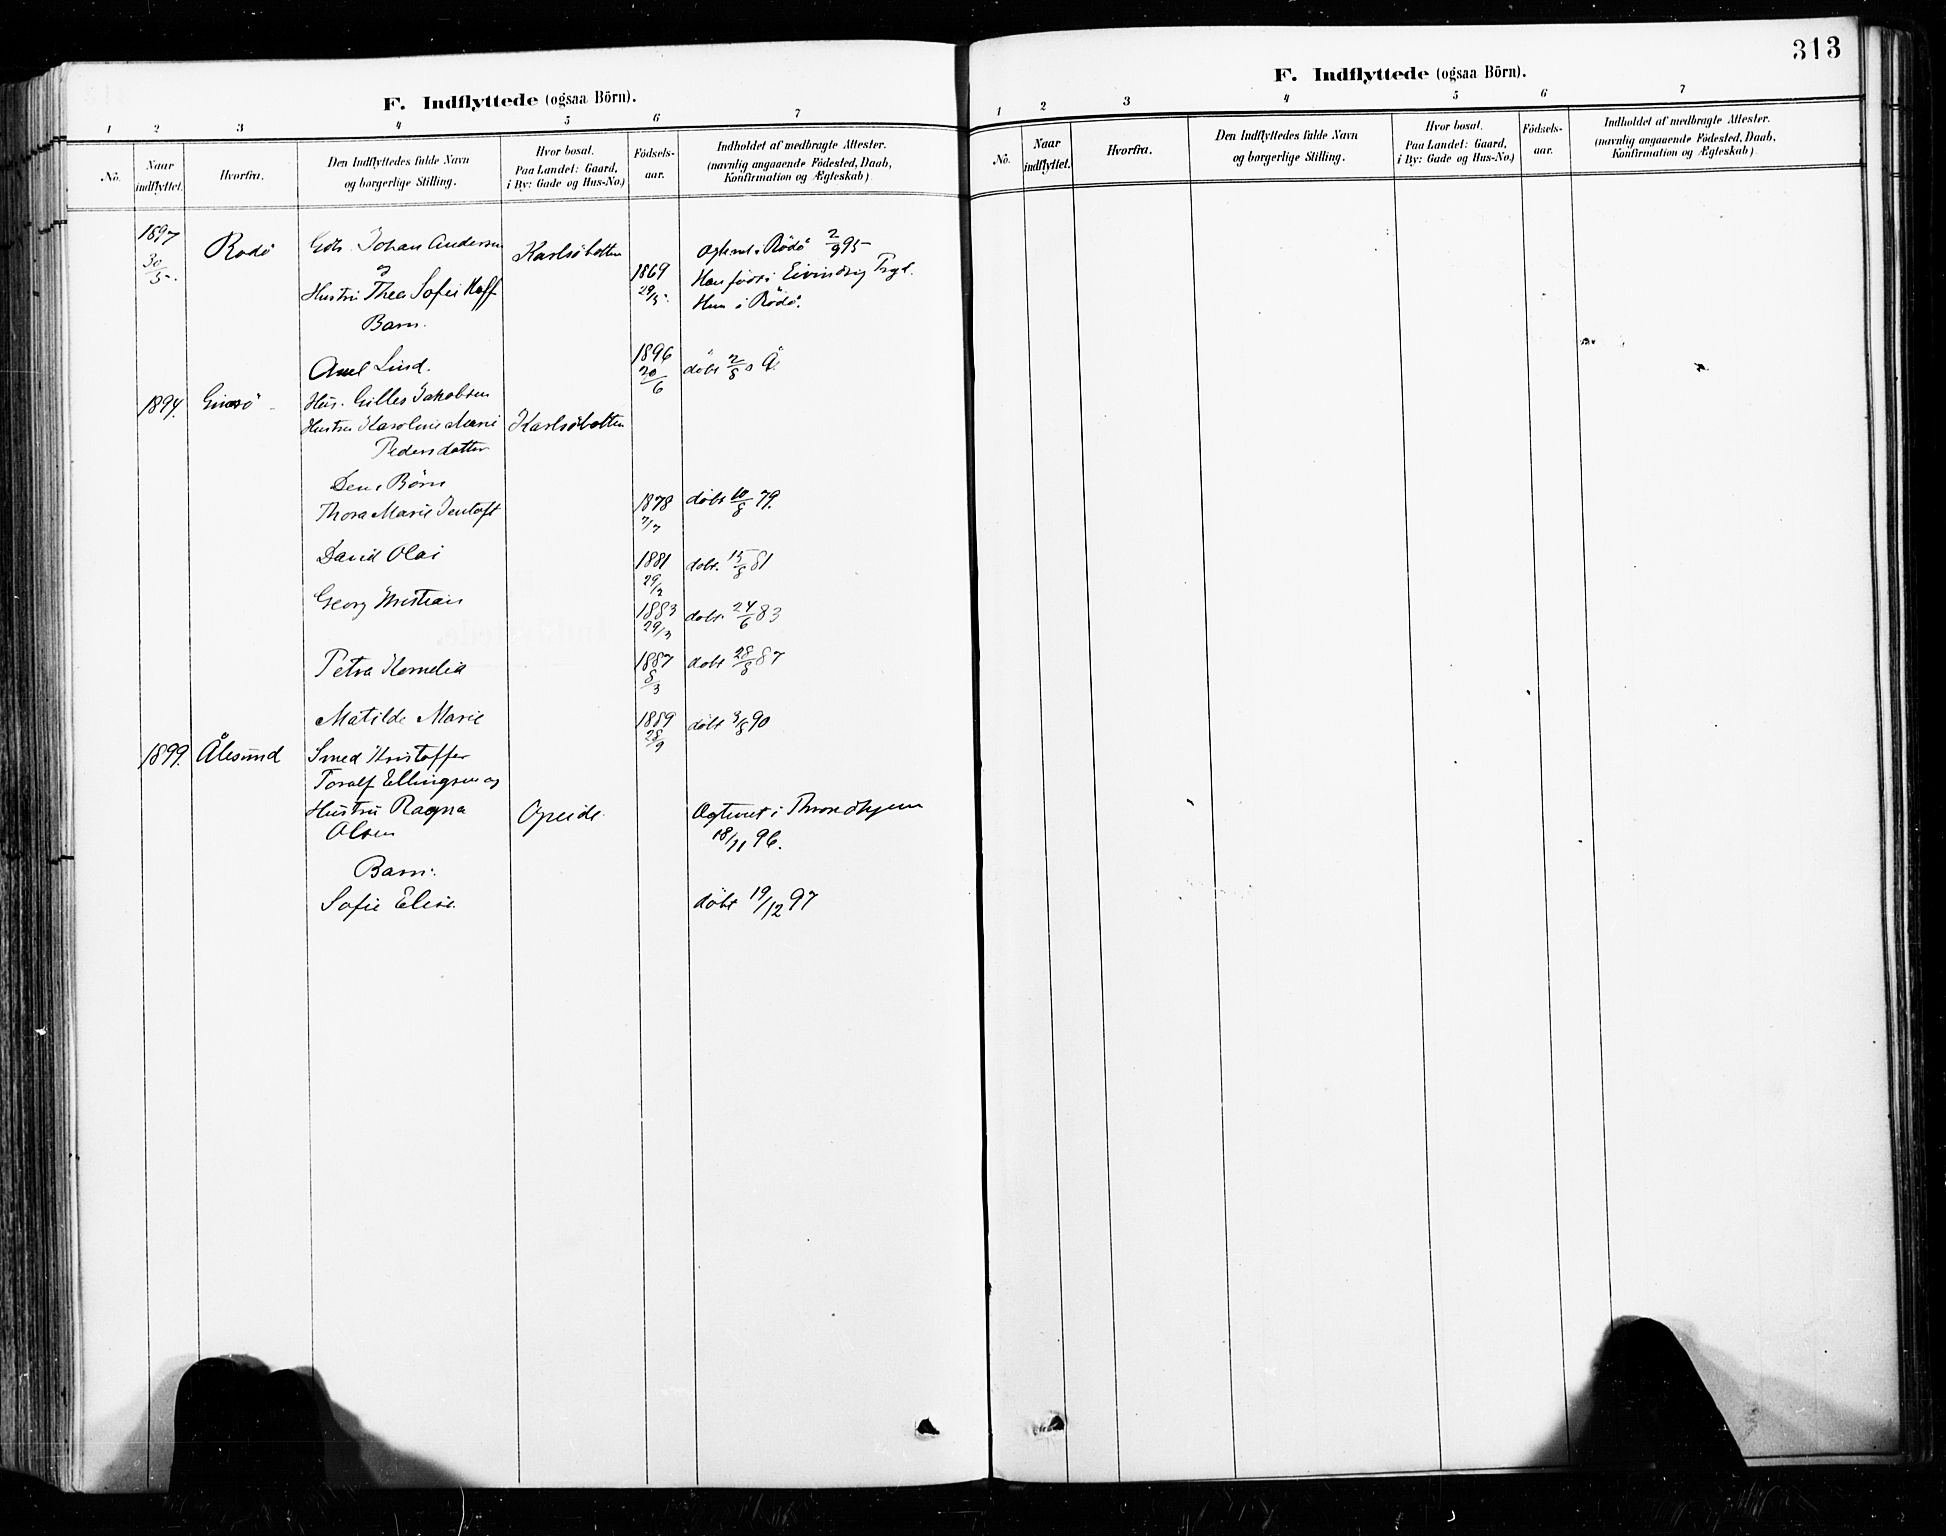 F. Indflyttede (ogsaa Börn).
1 2 3 4 5 6 7
No. Naar indflyttet. Hvorfra. Den Indflyttedes fulde Navn og borgerlige Stilling. Hvor bosat. Paa Landet: Gaard, i By: Gade og Hus-No.) Födsels-aar. Indholdet af medbragte Attester. (navnlig angaaende Födested, Daab, Konfirmation og Ægteskab)
1897 30/5 Rodö Johan Andersen Karlsöbotten Rödö 2/9 95
og 1869 29/5 Han födt i
Hustru Thea Sofie Hun i Rödö.
Barn.
Axel Lind. 1896 20/6 döbt 2/8
1894. Hus. Gilles Jakobsen
Hustru Karoline Marie Karlsöbotten
Pedersdatter
Börn
Thora Marie Jentoft 1878 7/7 döbt 10/8 79.
David Olai 1881 29/2 döbt. 15/8 81
Georg Kristian 1883 29/3 döbt 24/6 83
Petra Kornelia 1887 8/3 döbt 28/8 87
Matilde Marie 1889 28/9 döbt 3/8 90
1899. Ålesund Smed Kristoffer
Toralf Ellingsen og
Hustru Ragna Opeide. i Throndhjem
Olsen 18/11 96.
Barn:
Sofie Elise. döbt 19/12 97
313
F. Indflyttede (ogsaa Börn).
1 2 3 4 5 6 7
No. Naar indflyttet. Hvorfra. Den Indflyttedes fulde Navn og borgerlige Stilling. Hvor bosat. Paa Landet: Gaard, i By: Gade og Hus-No.) Födsels-aar. Indholdet af medbragte Attester. (navnlig angaaende Födested, Daab, Konfirmation og Ægteskab)